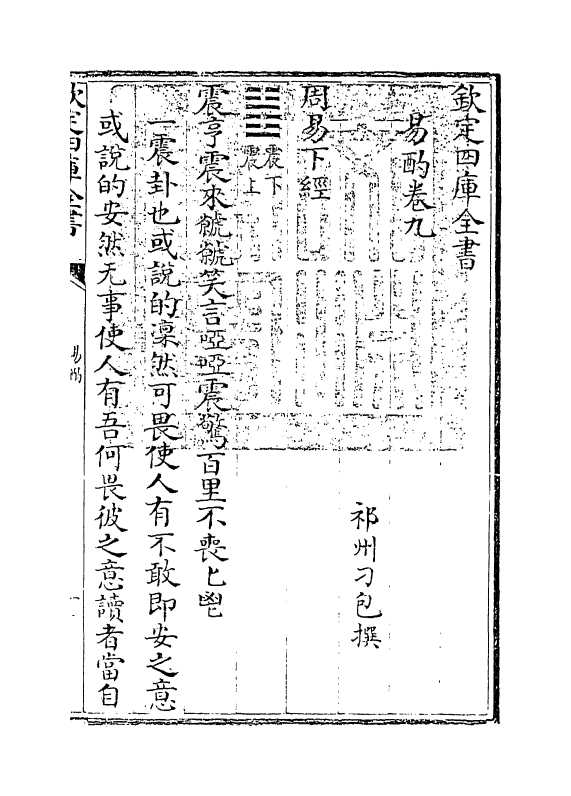 欽定四庫全書
易酌卷九
祁州刁包撰
周易下經
震下
震上
震亨震來虩虩笑言啞啞震驚百里不喪匕鬯
一震卦也或說的凜然可畏使人有不敢即安之意
或說的安然无事使人有吾何畏彼之意讀者當自
欽定四庫全書
易酌